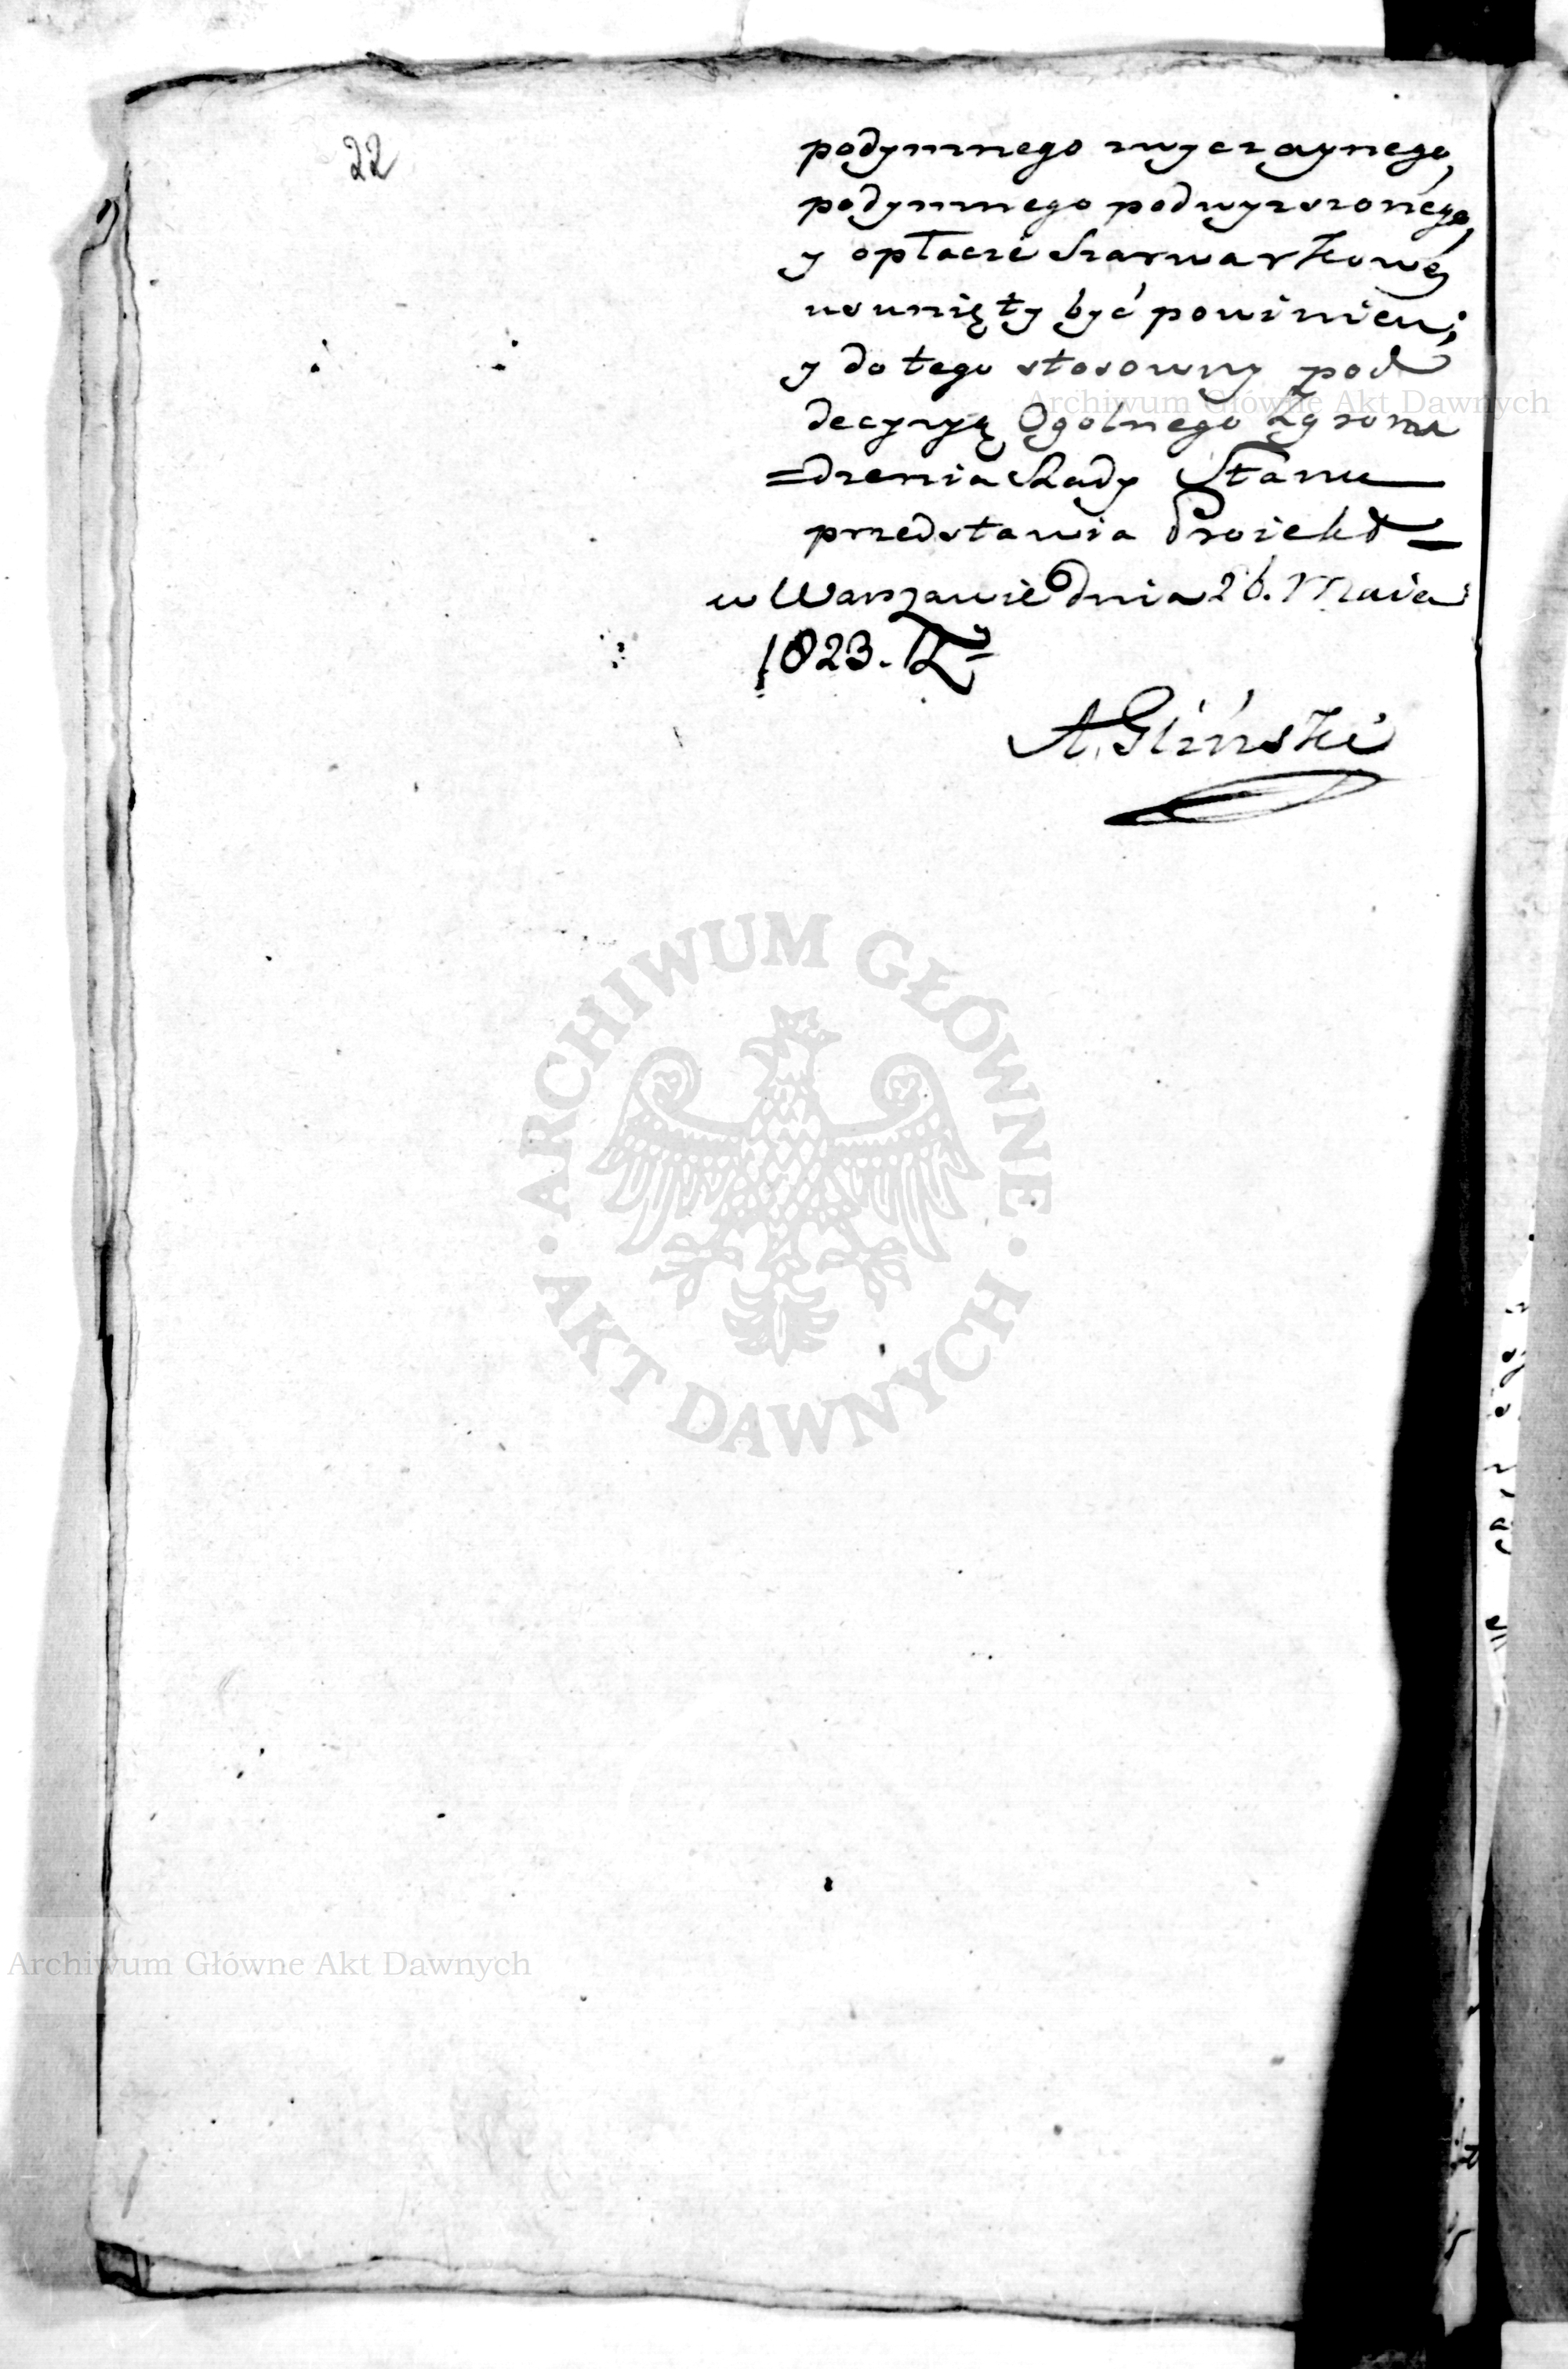 22
podymnego zwyczaynego,
podymnego podwyższonego,
y opłacie Szarwarkowéy
usunięty być powinien;
y do tego stosowny pod
decyzyą Ogolnego Zgroma
=dzenia Rady Stanu
przedstawia Proiekt =
w Warszawie dnia 26. Maia
1823. Ru
A. Gliński
Archiwum Główne Akt Dawnych
ARCHIWUM GŁÓWNE · AKT DAWNYCH ·
Archiwum Główne Akt Dawnych